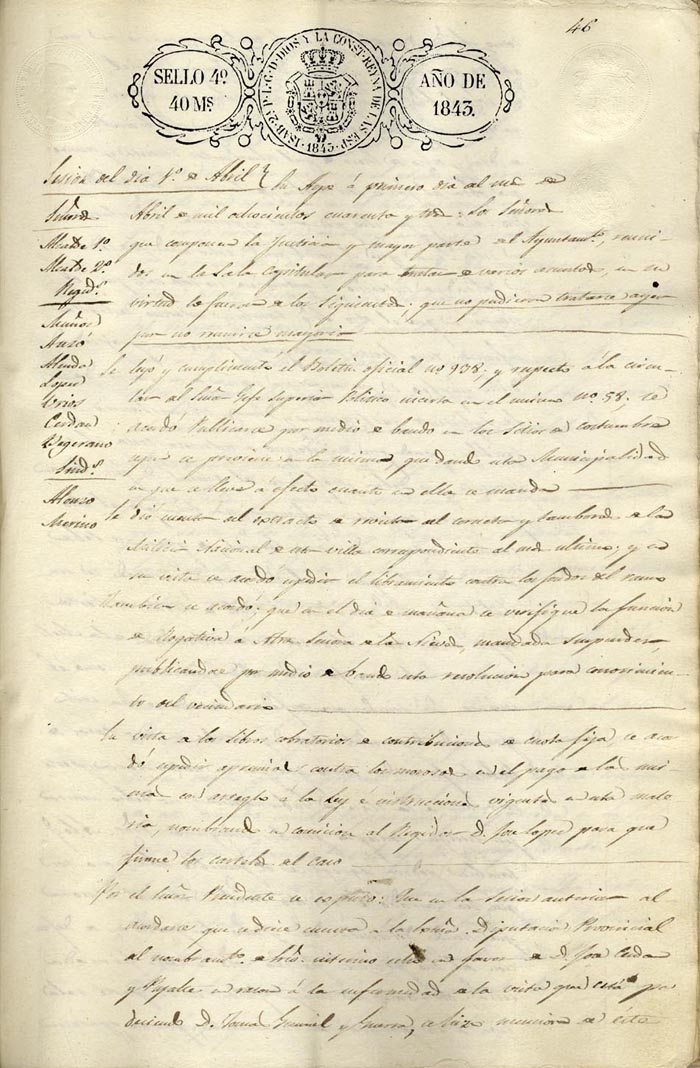 46
SELLO 4º
40 Ms
ISAB. 2ª P. L. G. D. DIOS Y LA CONST. REYNA DE LAS ESP.
1843
AÑO DE
1843.
Sesion del dia 1º de Abril
Señores
Alcalde 1º
Alcalde 2º
Regids.
Muñoz
Lopez
Cerdan
Sinds.
Alonzo
Merino
á primero dia del mes de
Abril de mil ochocientos cuarenta y tres: Los Señores
que componen la Justicia y mayor parte del Ayuntamto. reuni-
dos en la Sala Capitular para tratar de varios asuntos, en su
virtud lo fueron de los siguientes, que no pudieron tratarse ayer
por no reunirse mayoria
Se leyó y cumplimentó el Boletin oficial nº 938. y respecto á la circu-
lar del Señor Gefe Superior Politico inserta en el mismo nº 58, se
acordó Publicarse por medio de bando en los Sitios de costumbre
que se previene en la misma quedando esta Municipalidad
en que se lleve á efecto cuanto en ella se manda
Se dió cuenta del extracto de revista del corneta y tambores de la
Milicia Nacional de esta villa correspondiente al mes ultimo; y en
su vista se acordó expedir el libramiento contra los fondos del ramo
Tambien se acordó: que en el dia de mañana se verifique la funcion
de Rogativa á Ntra. Señora de las Nieves, mandada suspender,
publicandose por medio de bando esta resolucion para conocimien-
to del vecindario
En vista de los libros cobratorios de contribuciones de cuota fija se acor-
dó expedir apremios contra los morosos en el pago de la mis-
ma con arreglo á la Ley é instrucciones vigentes en esta mate-
ria, nombrando en comision al Regidor D. Jose Lopez para que
firme los carteles del caso
Por el Señor Presidente se espuso: Que en la Sesion anterior al
acordarse que se diese cuenta á la Excma. Diputacion Provincial
del nombramto. de Srio. interino en favor de D. Jose
y en razon á la enfermedad de la vista que está pa-
deciendo D. Tomas y Guerra, se hizo mencion de este